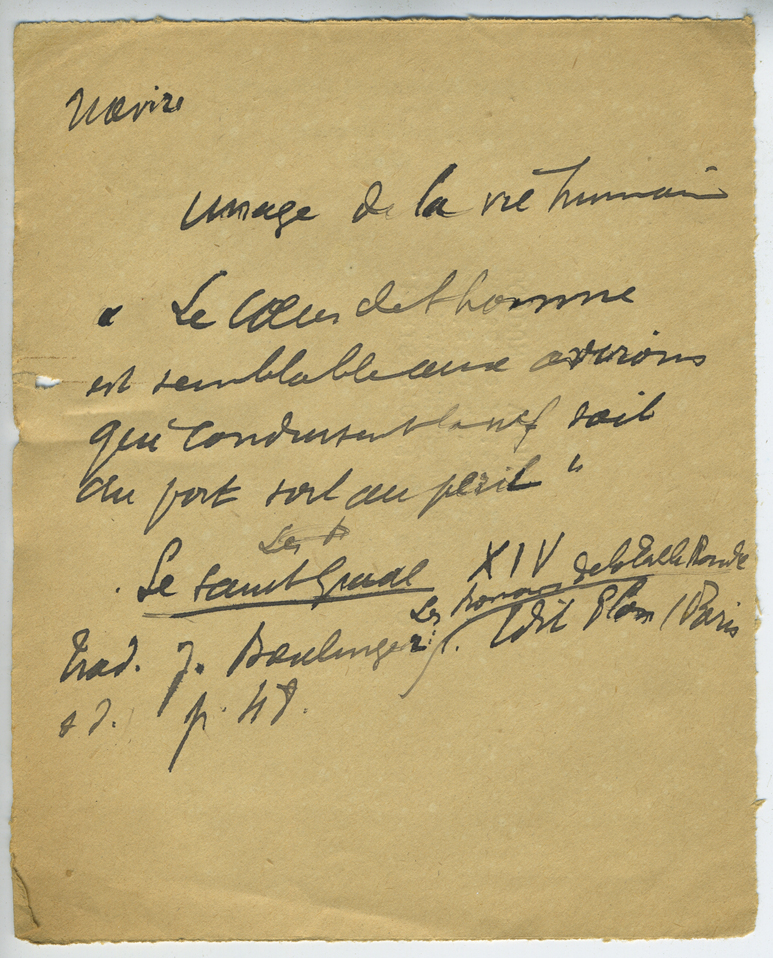 Navire
Image de la vie humaine
« Le Cœur de l'homme
est semblable aux avirons
qui conduisent la nef soit
au port soit au péril »
Les
Le Saint Graal XIV
Les Romans de la Table Ronde
Trad. J. Boulenger. Edit Plon / Paris
s d. p. 48.